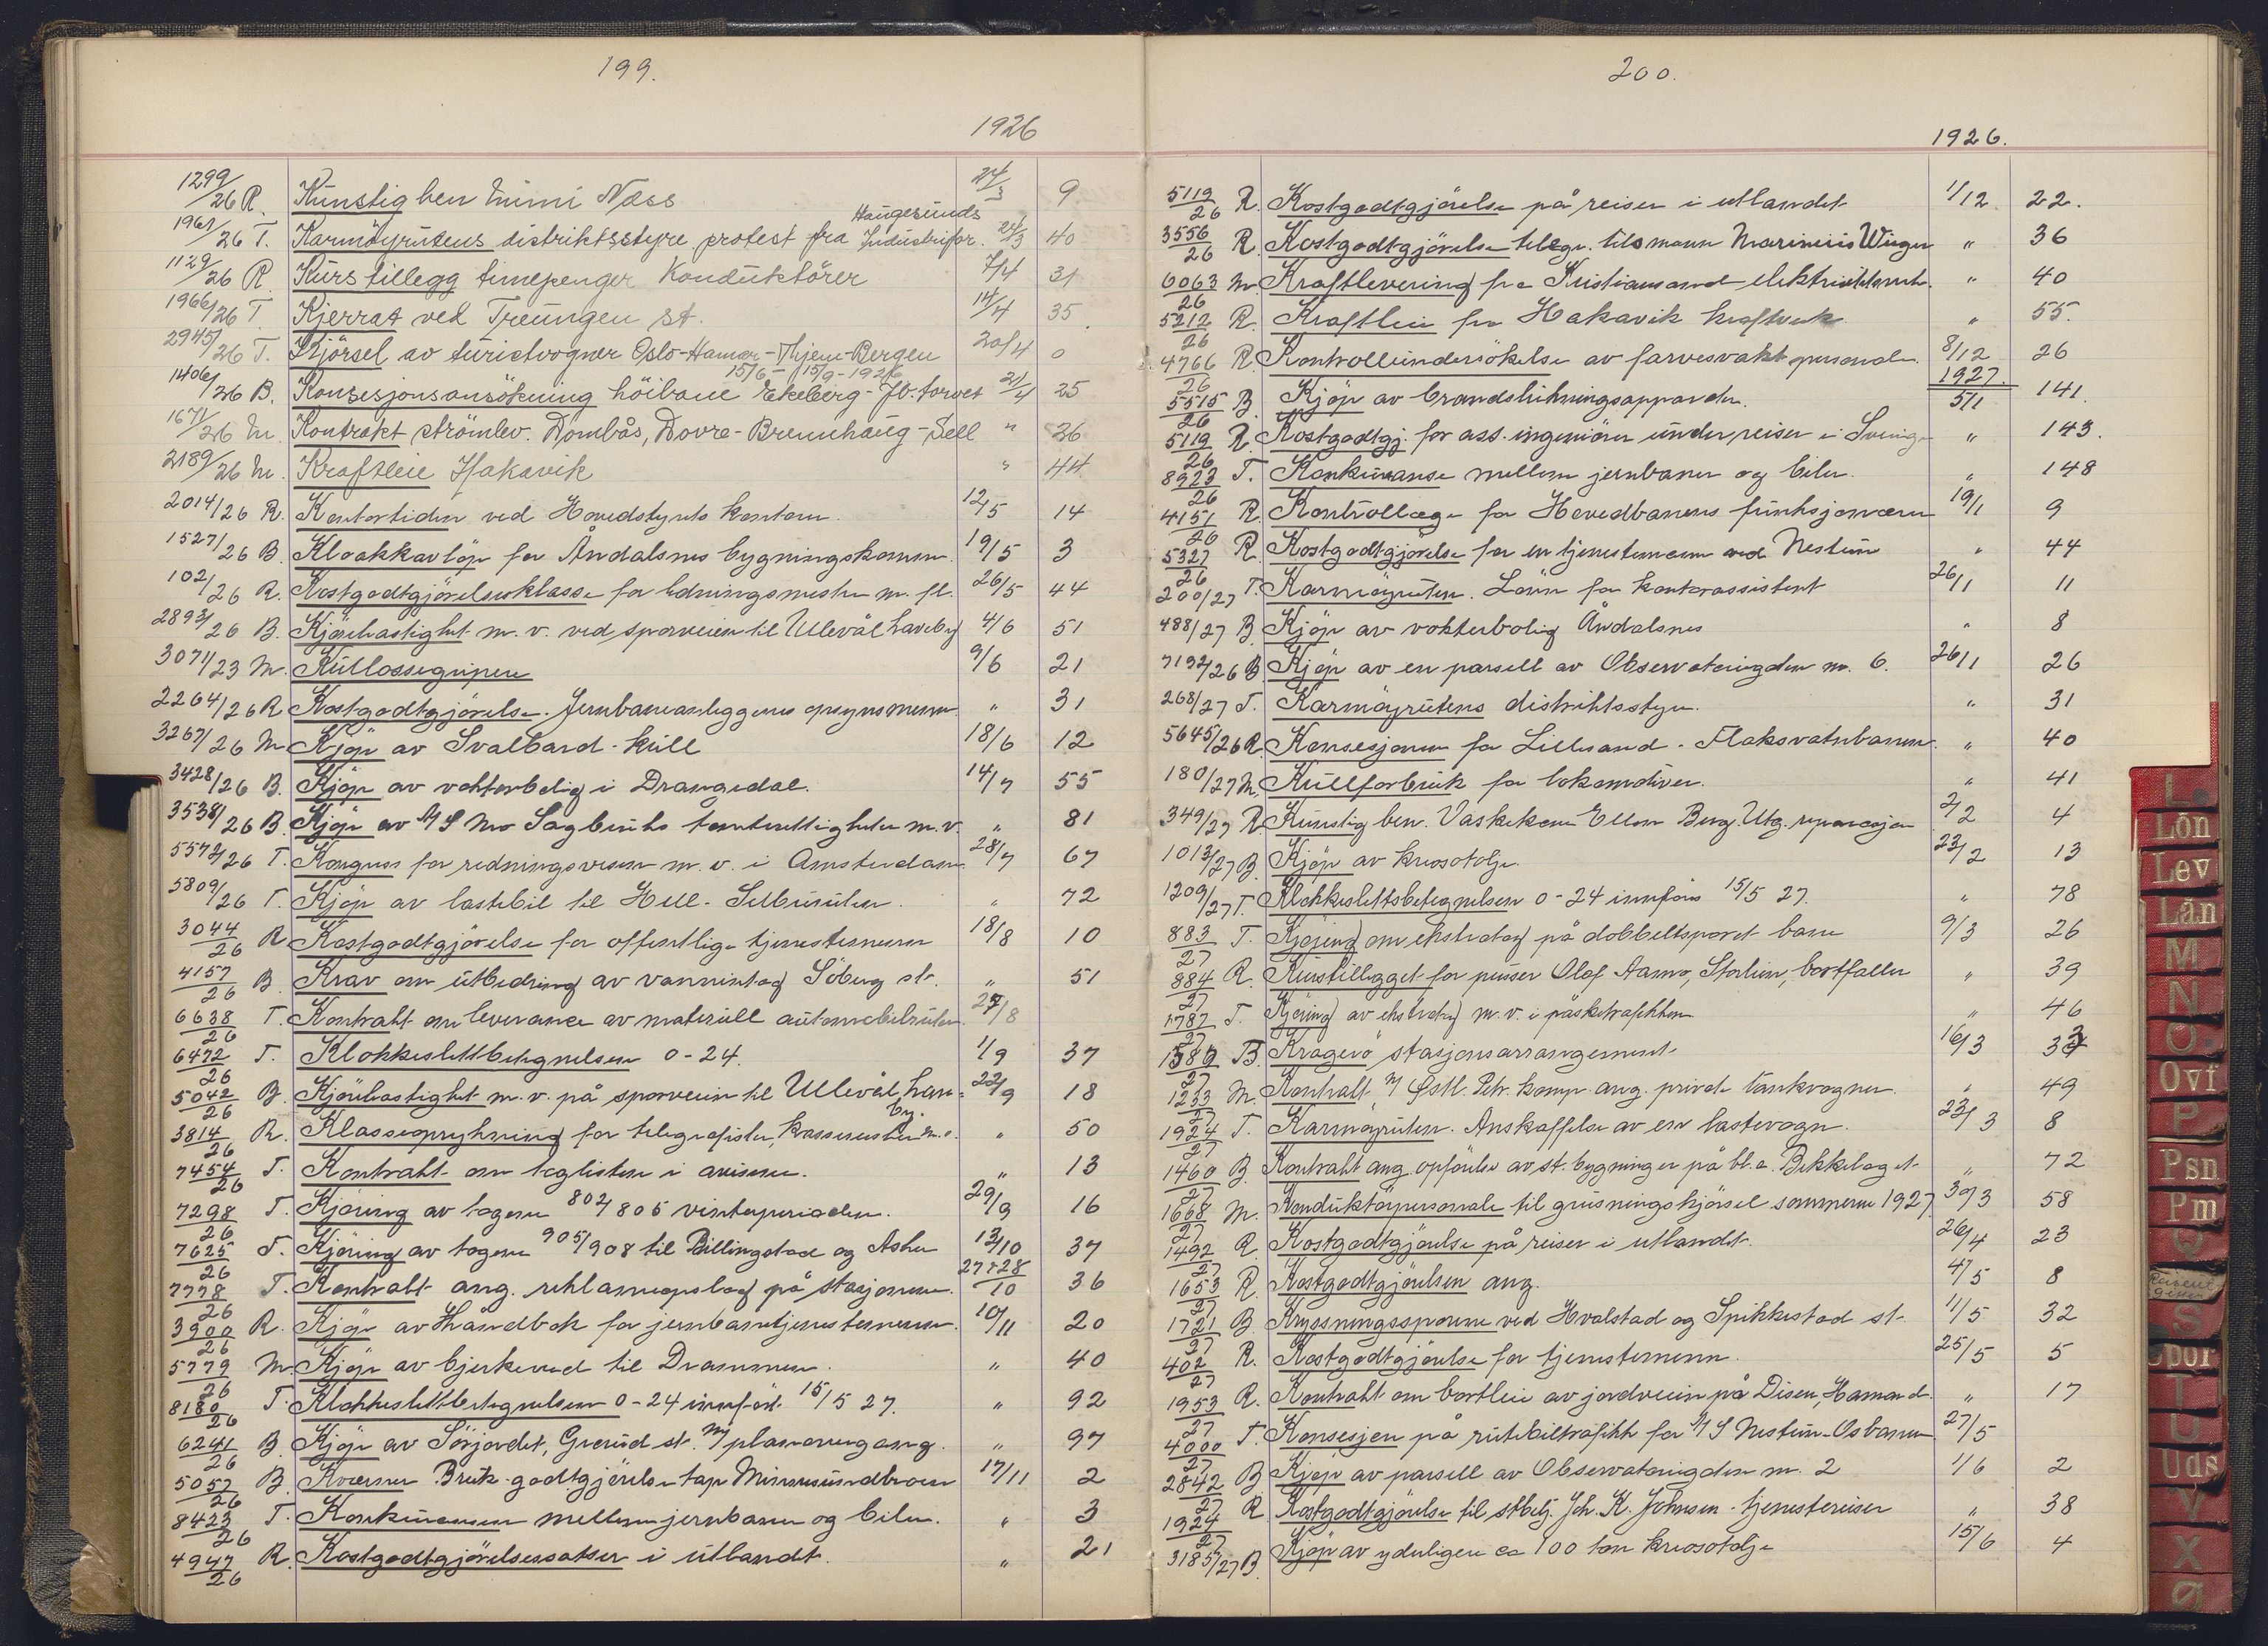 199.
1926
1299/26 R. Kunstig ben Mimi Næss 24/3 9
Haugesunds
1961/26 T. Karmöyrutens distriktsstyre protest fra Industrifor. 24/3 40
1129/26 R Kurstillegg timepenger Konduktörer 7/4 31
1966/26 T. Kjerrat ved Treungen st. 14/4 35
2945/26 T. Kjörsel av turistvogner Oslo-Hamar-Tyin-Bergen 20/4 0
15/6 - 15/9 - 1926
1406/26 B. Konsesjonsansökning höibane Ekeberg - Jb. torvet 21/4 25
1671/26 M. Kontrakt strömlev. Dombås, Dovre - Brennhaug - Sell " 26
2189/26 M. Kraftleie Hakavik " 44
2014/26 R. Kontortiden ved Hovedstyrets kontorer. 12/5 14
1527/26 B. Kloakkavlöp for Åndalsnes bygningskomm. 19/5 3
102/26 R. Kostgodtgjörelsesklasse for ledningsmestre m. fl. 26/5 44
2893/26 B. Kjörehastighet m. v. ved sporveien til Ullevål haveby 4/6 51
3071/23 M. Kullossegriper 9/6 21
2264/26 R Kostgodtgjörelse. Jernbaneanleggenes opsynsmenn " 31
3267/26 M Kjöp av Svalbard-kull 18/6 12
3428/26 B. Kjöp av vokterbolig i Drangedal. 14/7 55
3538/26 B. Kjöp av A/S Mo Sagbruks tomterettigheter m. v. " 81
5572/26 T. Kongress for redningsvesen m. v. i Amsterdam 28/7 67
5809/26 T. Kjöp av lastebil til Hell - Selburuten. " 72
3044/26 R Kostgodtgjörelse for offentlige tjenestemenn 18/8 10
4157/26 B. Krav om utbedring av vanninntag Söberg st. " 51
6638/26 T. Kontrakt om leveranse av materiell automobilruten 27/8
6472/26 T. Klokkeslettbetegnelsen 0-24. 1/9 37
5042/26 B. Kjörehastighet m. v. på sporveien til Ullevål have- 22/9 18
by.
3814/26 R. Klasseoprykning for telegrafister, kassemestre m. v. " 50
7454/26 T. Kontrakt om toglisten i avisene. " 13
7298/26 T. Kjöring av togene 802/805 vinterperioden. 29/9 16
7625/26 T. Kjöring av togene 905/908 til Billingstad og Asker 13/10 37
7778/26 T. Kontrakt ang. reklameopslag på stasjonene. 27+28/10 36
3900/26 R. Kjöp av Håndbok for jernbanetjenestemenn. 10/11 20
5779/26 M Kjöp av bjerkeved til Drammen. " 40
8180/26 T. Klokkeslettbetegnelsen 0-24 innfört 15/5 27. " 92
6241/26 B. Kjöp av Sörjordet, Grorud st. m/ planovergang. " 97
5057/26 B Kværner Bruk godtgjörelse tap Minnesundbroen 17/11 2
8423/26 T. Konkurransen mellem jernbaner og biler. " 3
4947/26 R. Kostgodtgjörelsessatser i utlandet. " 21
200.
1926.
5119/26 R. Kostgodtgjörelse på reiser i utlandet 1/12 22.
3556/26 R. Kostgodtgjörelse telegr. tilsmann Marinius Wiger " 36
6063/26 M. Kraftlevering fra Kristiansand elektrisitetsverk. " 40
5212/26 R. Kraftleie fra Hakavik kraftverk " 55.
4766/26 R. Kontrollundersökelse av farvesvakt personale. 8/12 26
1927
5515/26 B. Kjöp av brandslukningsapparater. 5/1 141
5119/26 R. Kostgodtgj. for ass. ingeniörer under reiser i Sverige " 143.
8923/26 T. Konkurranse mellem jernbaner og biler. " 148
4151/26 R. Kontrollæge for Hovedbanens funksjonærer 19/1 9
5327/26 R. Kostgodtgjörelse for en tjenestemann ved Nestun " 44
200/27 T. Karmöyruten. Lönn for kontorassistent 26/1 11
488/27 B. Kjöp av vokterbolig Åndalsnes " 8
7192/26 B Kjöp av en parsell av Observatoriegaten nr. 6. 26/1 26
268/27 T. Karmöyrutens distriktsstyre. " 31
5645/26 R. Konsesjonen for Lillesand - Flaksvatnbanen. " 40
180/27 M. Kullforbruk for lokomotiver. " 41
349/27 R Kunstig ben. Vaskekone Ellen Berg. Utg. reparasjon 2/2 4
1013/27 B. Kjöp av kreosotolje. 23/2 13
1209/27 T. Klokkeslettsbetegnelsen 0-24 innföres 15/5 27. " 78
883/27 T. Kjöring om ekstratog på dobbeltsporet bane 9/3 26
884/27 R. Kurstillegget for pusser Olaf Aamo, Storlien, bortfaller " 39
1787/27 T. Kjöring av ekstratog m. v. i påsketrafikken " 46
1589/27 B Kragerö stasjonsarrangement 16/3 32
1233/27 M. Kontrakt m/ Østl. Petr. Komp. ang. private tankvogner. " 49
1924/27 T. Karmöyruten. Anskaffelse av en lastevogn. 23/3 8
1460/27 B. Kontrakt ang. opförelse av st. bygninger på bl. a. Bekkelaget " 72
1668/27 M. Konduktörpersonale til grusningskjörsel sommeren 1927 30/3 58
1492/27 R. Kostgodtgjörelse på reiser i utlandet. 26/4 23
1653/27 R. Kostgodtgjörelsen ang. 4/5 8
1721/27 B Kryssningssporene ved Hvalstad og Spikkestad st. 11/5 32
402/27 R. Kostgodtgjörelse for tjenestemenn. 25/5 5
1953/27 R. Kontrakt om bortleie av jordveien på Disen, Hamar d. " 17
4000/27 T. Konsesjon på rutebiltrafikk for A/S Nestun-Osbanen 27/5
2842/27 B Kjöp av parsell av Observatoriegaten nr. 2 1/6 2
1924/27 R Kostgodtgjörelse til stbetj. Joh. K. Johnsen - tjenestereiser " 38
3185/27 B. Kjöp av yderligere ca 100 ton kreosotolje 15/6 4
L.
Lön
Lev
Lån
M
N
O.
Ovf
P
Psn
Pm
Q
S
Spor
T
U
Uds
V
X
Ø